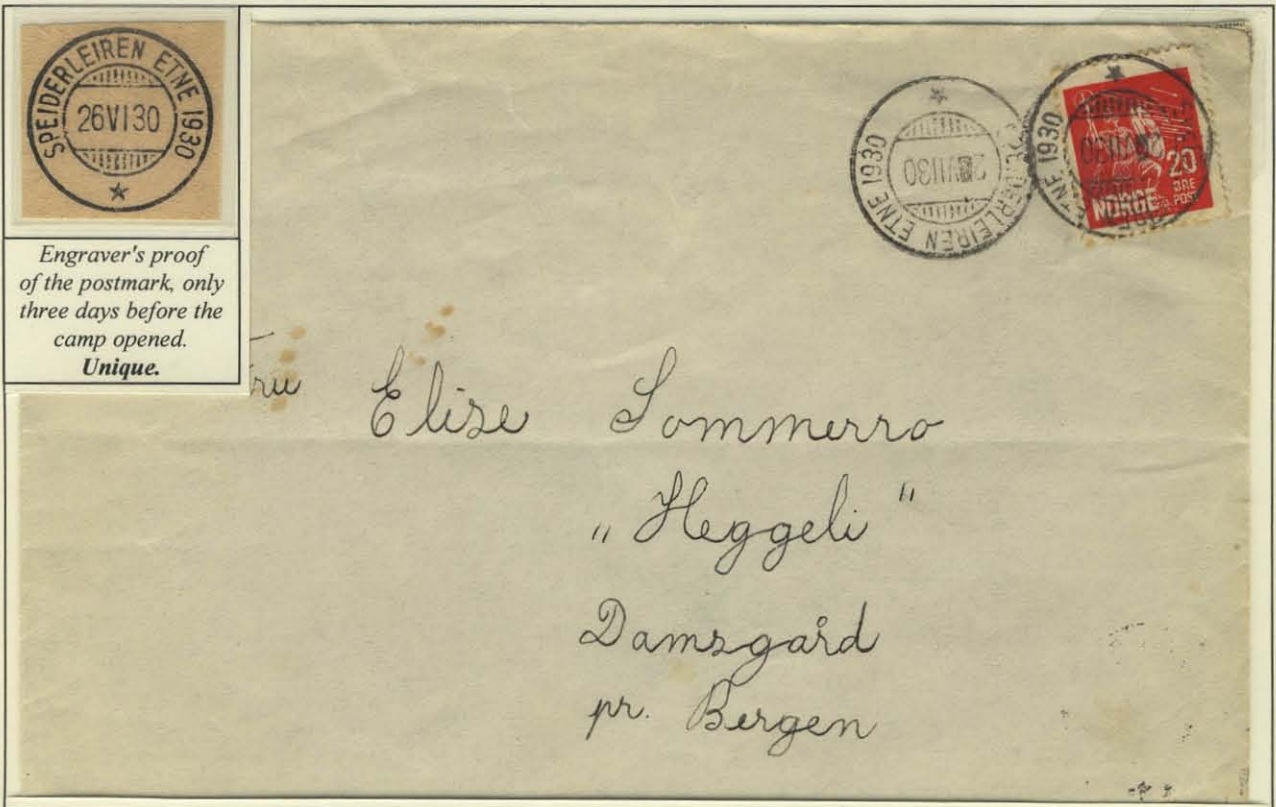 SPEIDERLEIREN ETNE 1930
26VI30
Engraver's proof
of the postmark, only
three days before the
camp opened.
Unique.
SPEIDERLEIREN ETNE 1930
ETNE 1930
20
ØRE
NORGE
POST
Elise Sommerro
„Heggeli"
Damsgård
pr. Bergen